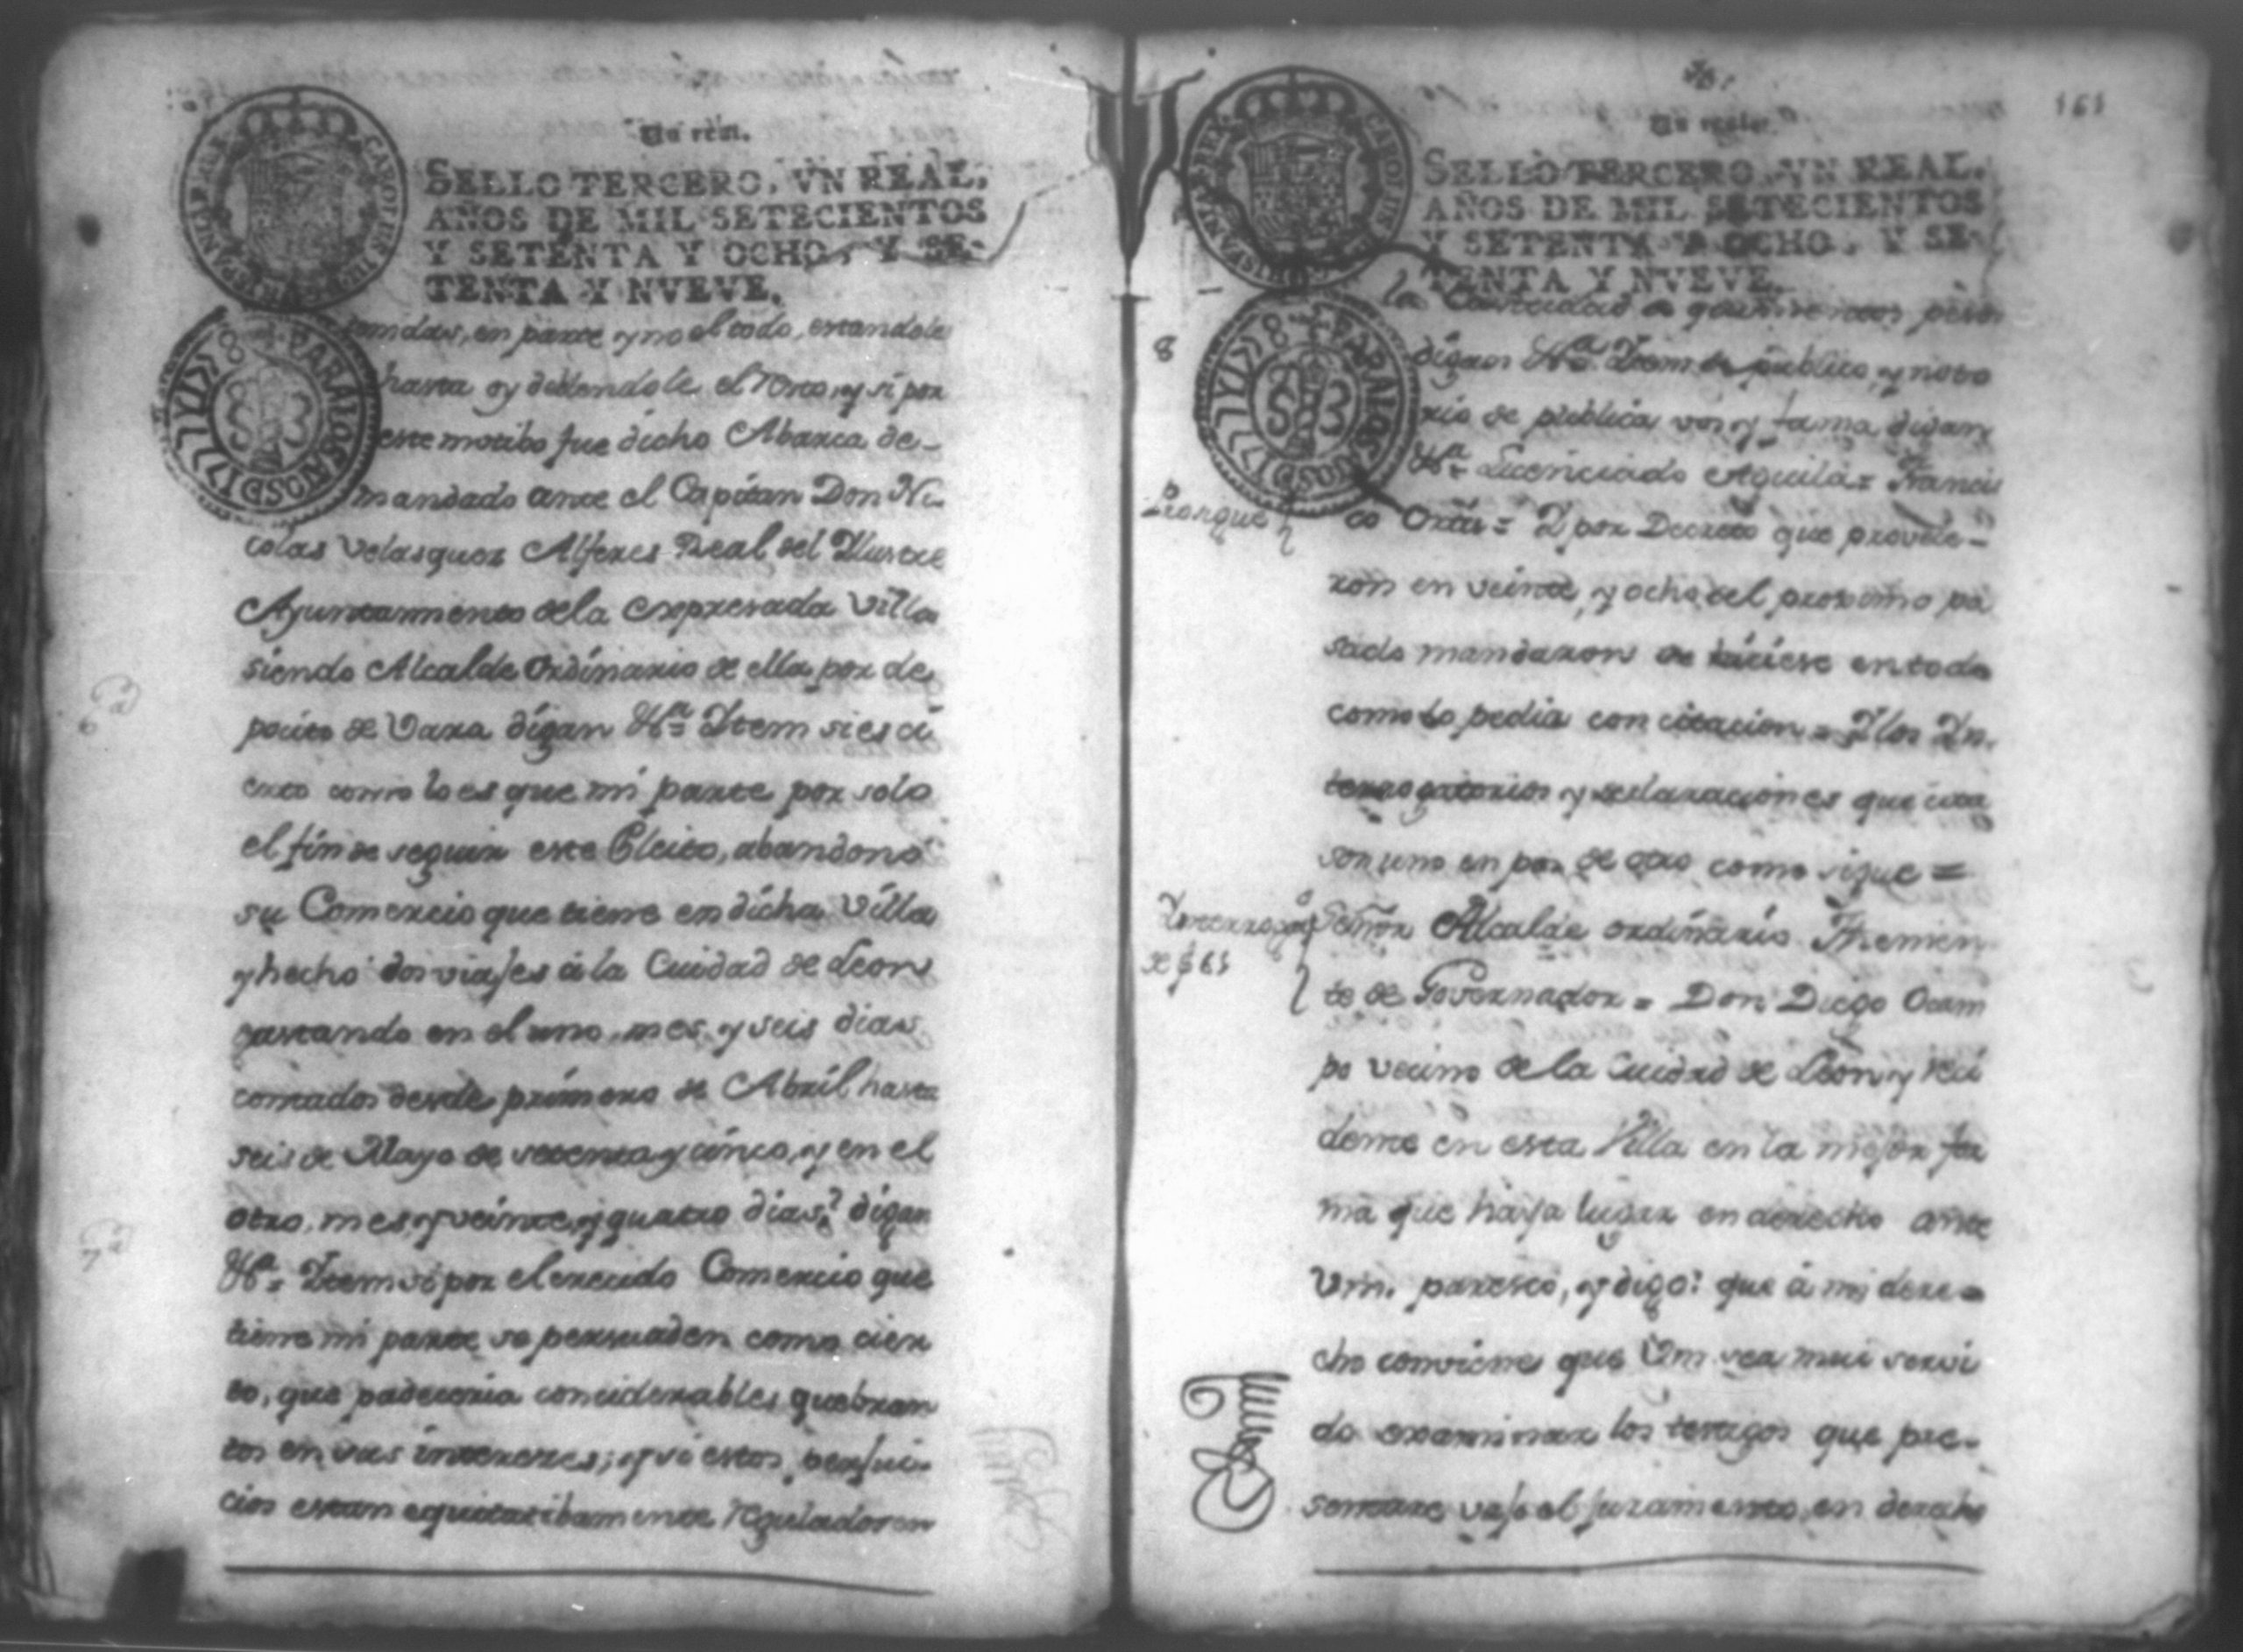 Un real.
SELLO TERCERO, VN REAL,
AÑOS DE MIL SETECIENTOS
Y SETENTA Y OCHO, Y SE-
TENTA Y NVEVE.
CAROLUS III
HISPANIAR REX
PARA LOS AÑOS D 1777 Y 1778
en parte y no el todo, estandole
hasta oy debiendole el resto, y si por
este motibo fue dicho Abarca de-
mandado ante el Capitan Don Ni-
colas Velasquez Alferes Real del Ilustre
Ayuntamiento de la expresada Villa
siendo Alcalde ordinario de ella por de
pocito de Vara digan Ha= Item si es ci
erto como lo es que mi parte por solo
el fin de seguir este Pleito, abandonó
su Comercio que tiene en dicha Villa
y hecho dos viajes á la Cuidad de Leon
gastando en el uno, mes, y seis dias
contados desde primero de Abril hasta
seis de Mayo de setenta y cinco, y en el
otro, mes, y veinte, y quatro dias? digan
Ha= Item si por el crecido Comercio que
tiene mi parte se persuaden como cier
to, que padeceria conciderables quebran
tos en sus intereses; y si estos perjui-
cios estan equitatibamente regulados en
6a
7a
161
Un real.
SELLO TERCERO, VN REAL,
AÑOS DE MIL SETECIENTOS
Y SETENTA Y OCHO, Y SE-
TENTA Y NVEVE.
CAROLUS III
HISPANIAR REX
PARA LOS AÑOS D 1777 Y 1778
la Cantidad de quinientos pesos
8
digan Ha= Item de publico, y noto
rio de publica vos y fama digan
Ha= Licenciado Aguila= Francis
co Ortis= Y por Decreto que provéie-
ron en veinte, y ocho del proximo pa
sado mandaron se hiciese en todo
como lo pedia con citacion= Y los In-
terrogatorios y declaraciones que cita
son uno en pos de otro como sigue=
Interrogo
de f 61
Señor Alcalde ordinario Thenien
te de Governador= Don Diego Ocam
po vecino de la Cuidad de Leon y reci
dente en esta Villa en la mejor for
ma que haya lugar en derecho ante
Vm. paresco, y digo: que á mi dere-
cho conviene que Vm sea mui servi
do examinar los testigos que pre-
sentare vajo el juramento en derecho